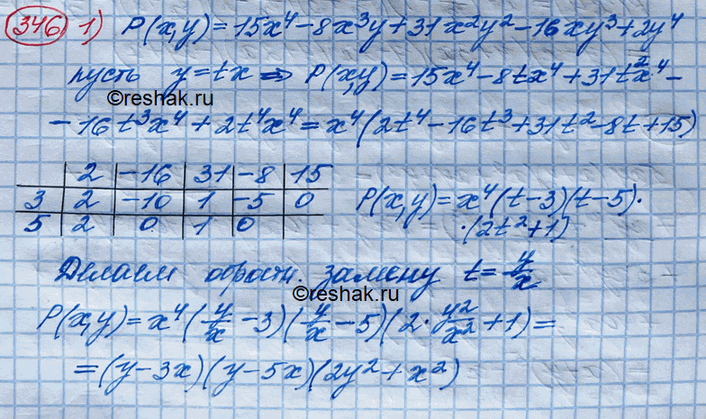 346 1) P(x,y)=15x⁴-8x³y+31x²y²-16xy³+2y⁴
пусть y=tx ⇒ P(x,y)=15x⁴-8tx⁴+31t²x⁴-
©reshak.ru
-16t³x⁴+2t⁴x⁴=x⁴(2t⁴-16t³+31t²-8t+15)
2 -16 31 -8 15
3 2 -10 1 -5 0
5 2 0 1 0
P(x,y)=x⁴(t-3)(t-5)·
·(2t²+1)
Делаем обратн. замену t=y/x
©reshak.ru
P(x,y)=x⁴(y/x-3)(y/x-5)(2·y²/x²+1)=
=(y-3x)(y-5x)(2y²+x²)